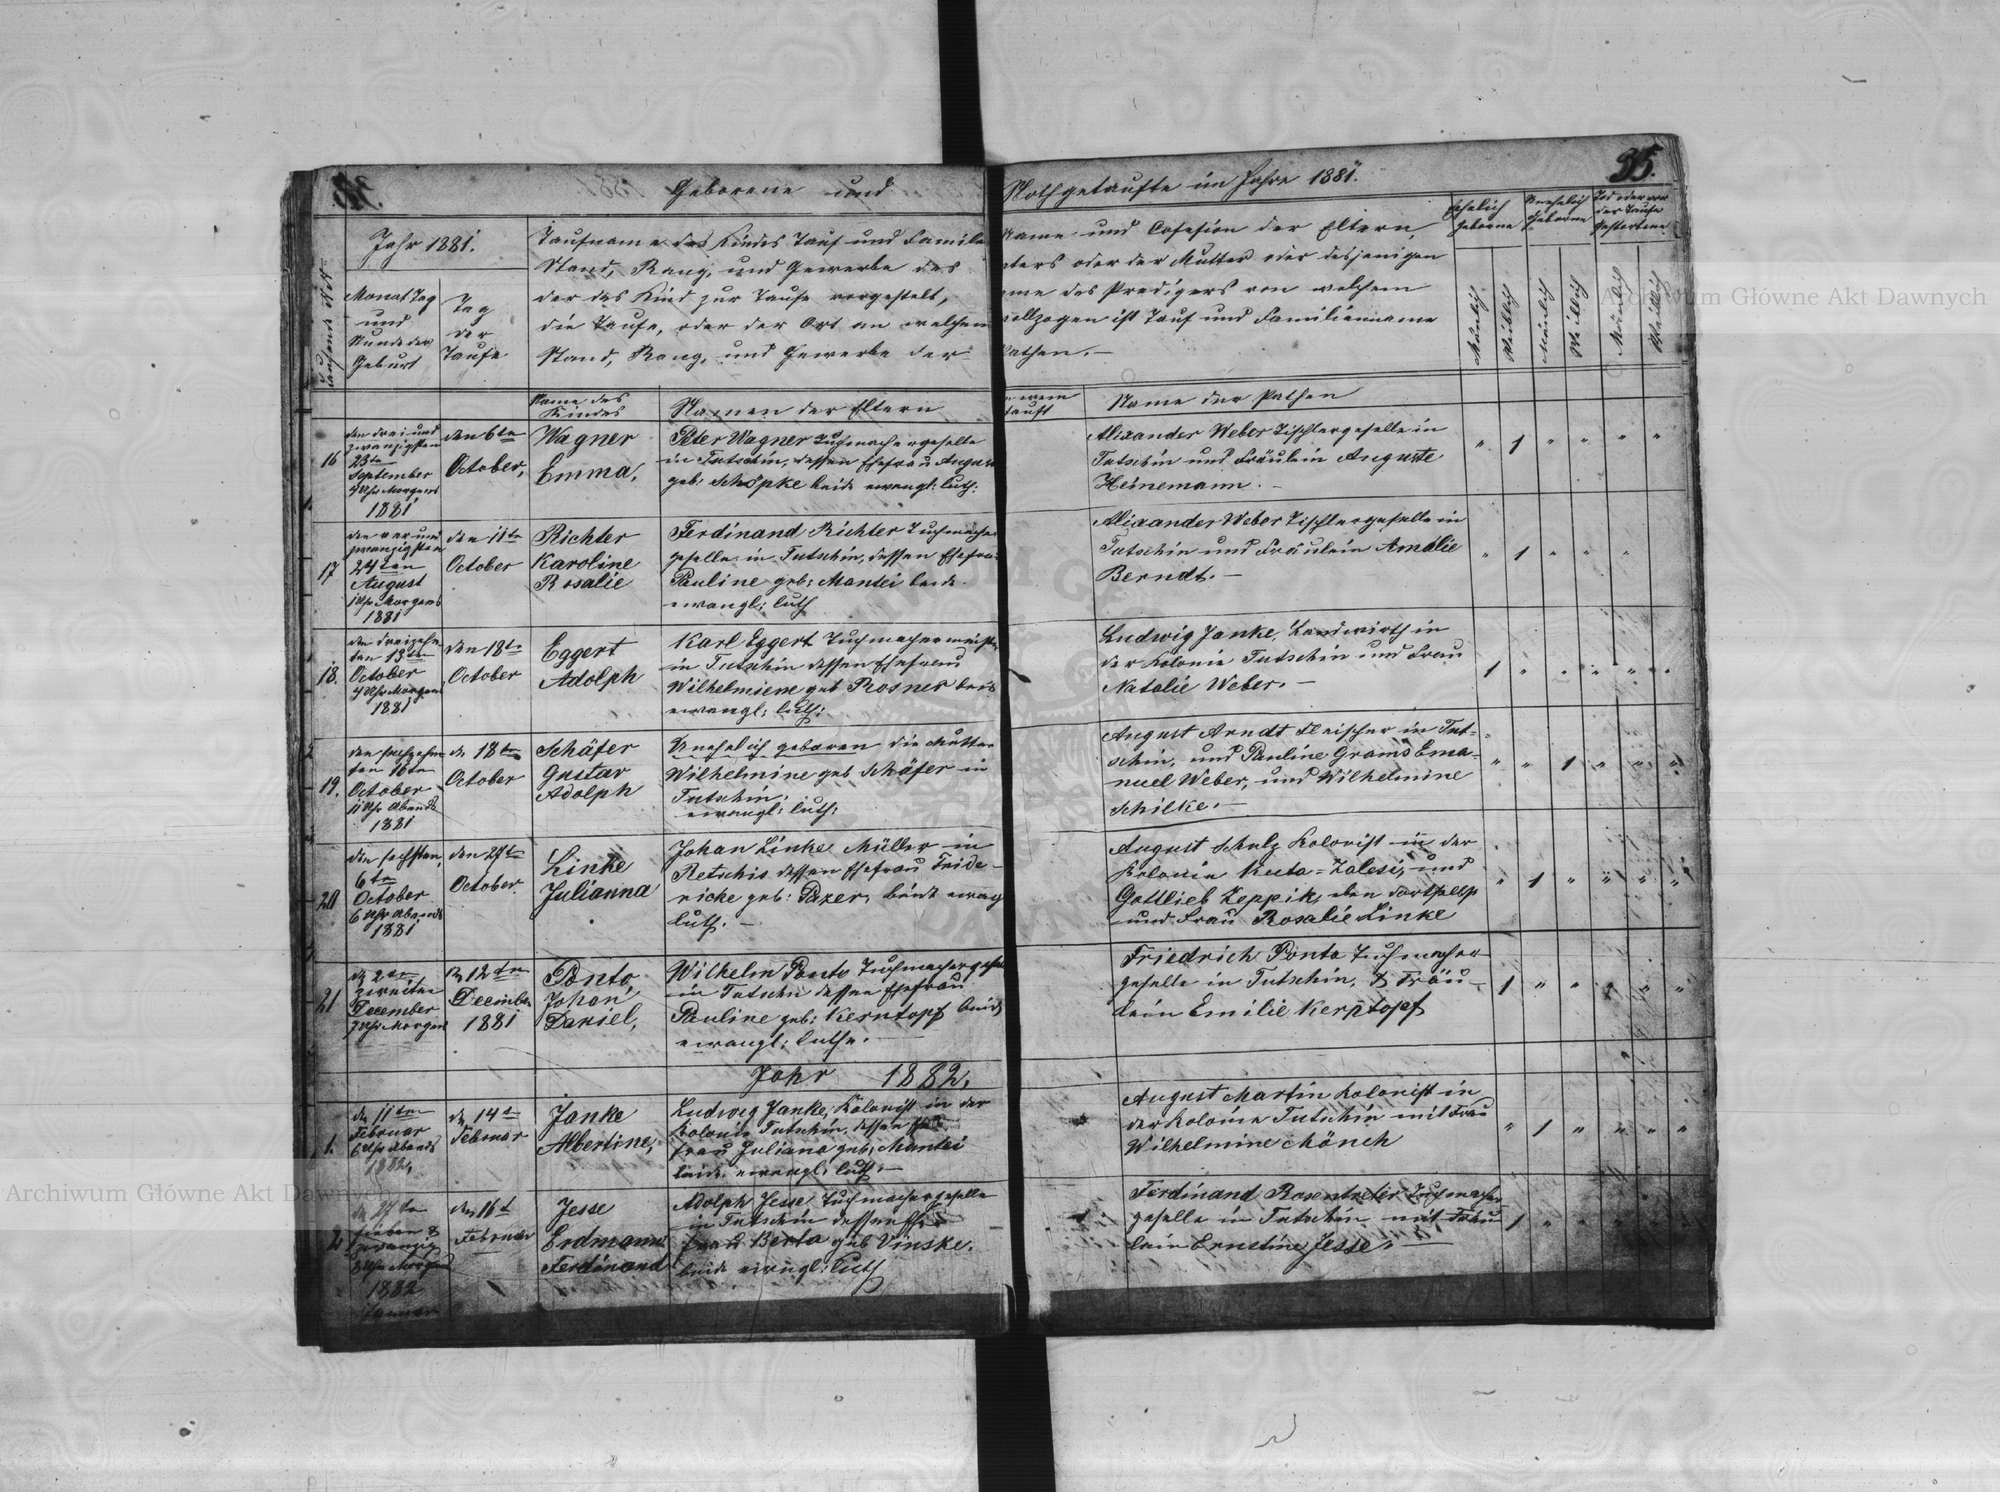 Geborene und
Nothgetaufte im Jahre 1881.
35.
Jahr 1881.
Taufname des Kindes Tauf und Familie
Stand, Rang, und Gewerbe des
der das Kind zur Taufe vorgestelt,
die Taufe, oder der Ort an welchem
Stand, Rang, und Gewerbe der
Monat Tag
und
Stunde der
Geburt
Tag
der
Taufe
Name und Cofesion der Eltern,
aters oder der Mutter oder desjenigen
ame des Predigers von welchem
vollzogen ist Tauf und Familienname
Pathen.
Ehelich
Geborene
Unehelich
Geborene
Tod oder vor
der Taufe
Gestorbene
Mänlich
Weiblich
Mänlich
Weiblich
Mänlich
Weiblich
Name des
Kindes
Namen der Eltern
tauft
Name der Pathen
16
den drei und
zwanzigsten
23ten
September
4 Uhr Morgens
1881
den 6ten
October,
Wagner
Emma,
Peter Wagner Tuchmachergeselle
in Tutschin, dessen Ehefrau August
geb: Schöpke beide ewangl: luth:
Alixander Weber Tischlergeselle in
Tutschin und Fräulein Auguste
Heinemann. –
" 1 " " " "
17
den vier und
zwanzigsten
24ten
August
1 Uhr Morgens
1881
den 11te
October
Richter
Karoline
Rosalie
Ferdinand Richter Tuchmacher
geselle in Tutschin, dessen Ehefrau
Pauline geb: Mantei beide
ewangl: luth
Alixander Weber Tischlergeselle in
Tutschin und Fräulein Amalie
Berndt. –
" 1 " " "
18.
den dreizehn
ten 13ten
October
4 Uhr Morgens
1881
den 18te
October
Eggert
Adolph
Karl Eggert Tuchmachermeister
in Tutschin dessen Ehefrau
Wilhelmiene geb Rosner beid
ewangl: luth:
Ludwig Janke, Landwirth in
der Kolonie Tutschin und Frau
Natalie Weber. –
1 " " " " "
19.
den sechzehn
ten 16ten
October
11 Uhr Abends
1881
d. 18ten
October
Schäfer
Gustav
Adolph
Unehelich geboren die Mutter
Wilhelmine geb Schäfer in
Tutschin.
ewangl: luth:
August Arndt Fleischer in Tut-
schin, und Pauline Grams Ema-
nuel Weber, und Wilhelmine
Schilke. –
" " 1 " " "
20
den sechsten
6ten
October
6 Uhr Abends
1881
den 27te
October
Linke
Julianna
Johan Linke Müller in
Retschis dessen Ehefrau Fride-
ricke geb: Pazer, beide ewag
luth. –
August Schulz Kolonist in der
Kolonie Kuta-Zalesi, und
Gottlieb Zeppik, eben dortselbst
und Frau Rosalie Linke
" 1 " " " "
21
d. 2ten
zweiten
December
7 Uhr Morgen
d. 12ten
December
1881
Ponto,
Johan
Daniel,
Wilhelm Ponto Tuchmachergesel
in Tutschin dessen Ehefrau
Pauline geb: Kerntopf beide
ewangl: luthr.
Friedrich Ponto Tuchmacher
geselle in Tutschin, & Fräu-
lein Emilie Kerntopf
1 " " " " "
Jahr 1882,
1.
d. 11ten
Februar
6 Uhr Abends
1882,
d. 14te
Februar
Janke
Albertine,
Ludwig Janke, Kolonist in der
Kolonie Tutschin, dessen Ehe
frau Juliana geb: Mantei
beide ewangl: luth. –
August Martin Kolonist in
der Kolonie Tutschin mit Frau
Wilhelmine Mönch
" 1 " " " "
2
d. 27ten
sieben &
zwanzig
8 Uhr Morgen
1882
Januar
den 16t
Februar
Jesse
Erdmann
Ferdinand
Adolph Jesse Tuchmachergeselle
in Tutschin dessen Ehe
frau Berta geb Vinske.
beide ewngl: luth
Ferdinand Rosentreter Tuchmacher
geselle in Tutschin mit Fräu
lein Ernstine Jesse. –
1 " " " " "
Archiwum Główne Akt Dawnych
Archiwum Główne Akt Dawnych